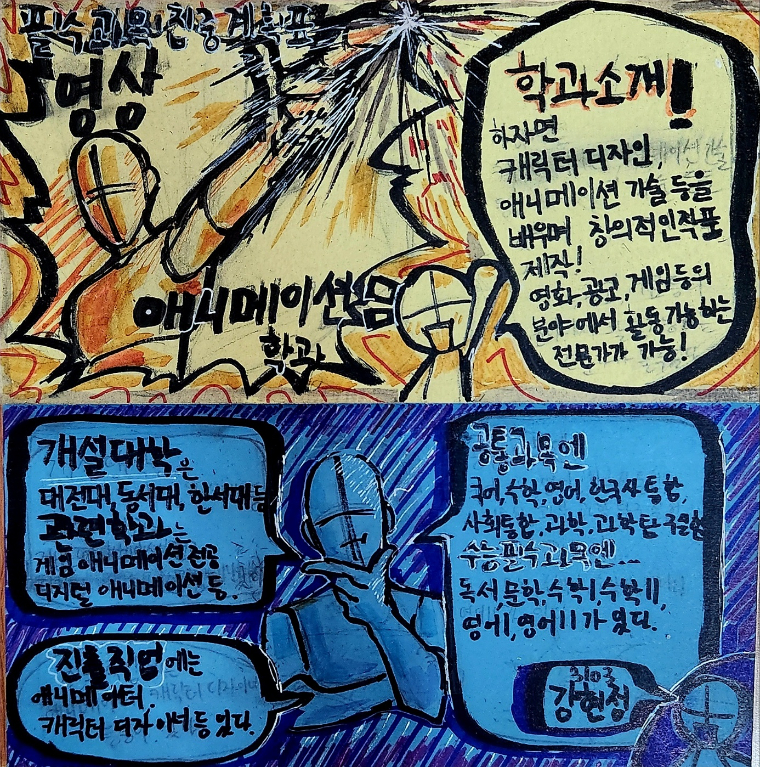 필수과목 집중계획표
영상
애니메이션
학과
학과소개!
하자면
캐릭터 디자인,
애니메이션 기술 등을
배우며 창의적인 작품
제작!
영화, 광고, 게임등의
분야에서 활동 가능하는
전문가가 가능!
개설대학은
대전대, 동서대, 한서대등
관련학과는
게임 애니메이션 전공
디지털 애니메이션 등.
진출직업에는
애니메이터,
캐릭터 디자이너등 있다.
공통과목엔
국어, 수학, 영어, 한국사, 통합,
사회통합, 과학, 과학탐구실험
수능필수과목엔...
독서, 문학, 수학I, 수학II,
영어I, 영어II가 있다.
3103
강현정